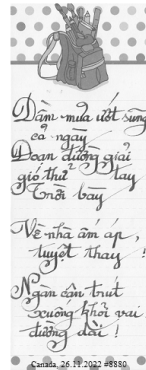 Dầm mưa ướt sũng
cả ngày
Đoạn đường giải
gió thử tay
Trời bày
Về nhà ấm áp,
tuyệt thay !
Ngàn cân trút
xuống khỏi vai
đường dài !
Canada, 26.11.2022 #8880